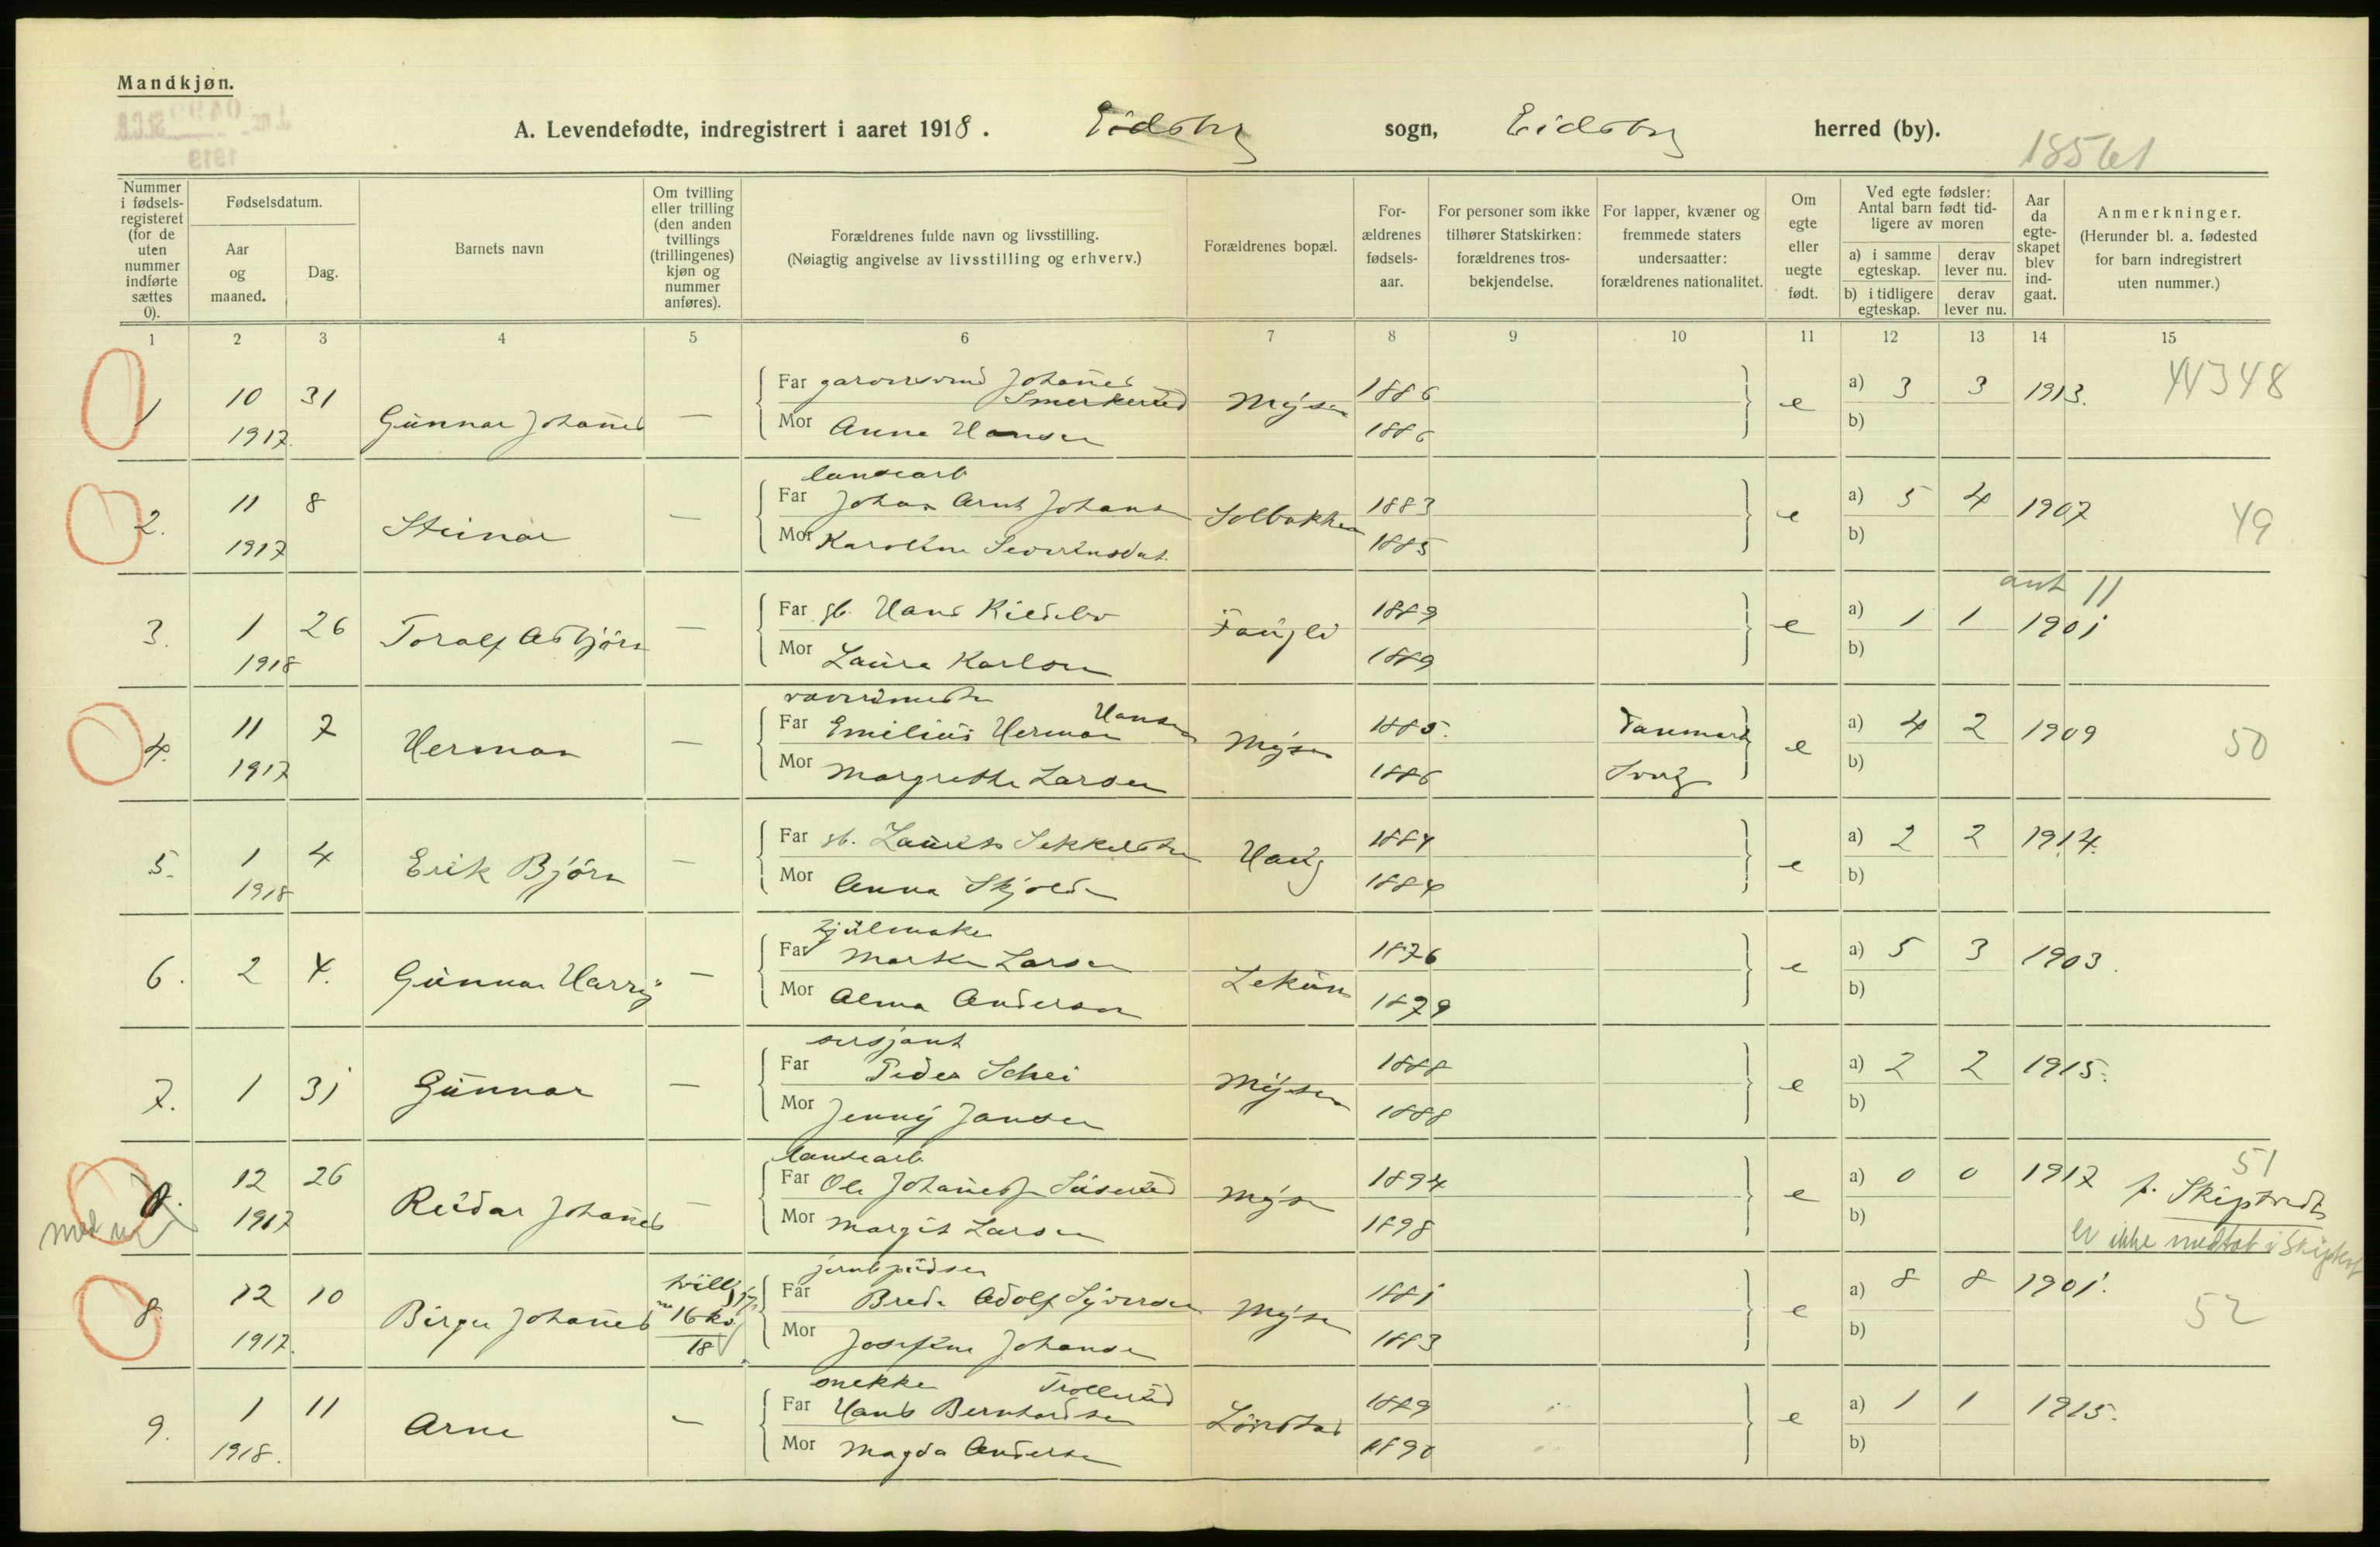 Mandkjøn.
A. Levendefødte, indregistrert i aaret 1918. Eidsberg sogn, Eidsberg herred (by).
18561
Nummer i fødselsregisteret (for de uten nummer indførte sættes 0).
Fødselsdatum.
Aar og maaned.
Dag.
Barnets navn
Om tvilling eller trilling (den anden tvillings (trillingenes) kjøn og nummer anføres).
Forældrenes fulde navn og livsstilling.
(Nøiagtig angivelse av livsstilling og erhverv.)
Forældrenes bopæl.
Forældrenes fødselsaar.
For personer som ikke tilhører Statskirken: forældrenes trosbekjendelse.
For lapper, kvæner og fremmede staters undersaatter: forældrenes nationalitet.
Om egte eller uegte født.
Ved egte fødsler: Antal barn født tidligere av moren
a) i samme egteskap. derav lever nu.
b) i tidligere egteskap. derav lever nu.
Aar da egteskapet blev indgaat.
Anmerkninger.
(Herunder bl. a. fødested for barn indregistrert uten nummer.)
1 2 3 4 5 6 7 8 9 10 11 12 13 14 15
1 10 31 Far Johannes Smerkerud 1886 a) 3 3 1913.
1917. Gunnar Johannes — Mor Anna Hansen Mysen 1886 e b)
landarb
2. 11 8 Far Johan Arnt Johans 1883 a) 5 4 1907 49
1917 Steinar — Mor Karoline Severinsdat. Solbakken 1885 e b)
ant 11
3. 1 26 Toralf Asbjörn — Far gb. Hans Kildebo 1889 e a) 1 1 1901
1918 Mor Laura Karlsen 1889 b)
Hansen
4. 11 7 Herman — Far Emilius Herman Mysen 1885. Danmark e a) 4 2 1909 50
1917 Mor Margrethe Larsen 1886 Sverg b)
5. 1 4 Erik Björn — Far gb. Laurits Sekkelsten Haug 1884 e a) 2 2 1914.
1918 Mor Anna Skjolden 1884 b)
hjulmaker
6. 2 4. Gunnar Harry — Far Martin Larsen 1876 e a) 5 3 1903.
Mor Alma Andersen Lekum 1879 b)
sersjant
7. 1 31 Gunnar — Far Peder Schei Mysen 1888 e a) 2 2 1915.
Mor Jenny Jansen 1888 b)
landarb 51
0. 12 26 Reidar Johannes — Far Ole Johannes Mysen 1894 e a) 0 0 1917 f. Skiptvedt
1917 Mor Margit Larsen 1898 b)
er ikke medtat i Skiptvet
tvill
8. 12 10 Birger Johannes 16 kv Far Brede Adolf Syversen Mysen 1881 e a) 8 8 1901. 52
1917. 18 Mor Josefine Johansen 1883 b)
snekker Trollerud
9. 1 11 Arne — Far Hans Bernhardsen 1889 e a) 1 1 1915.
1918. Mor Magda Andersen 1890 b)